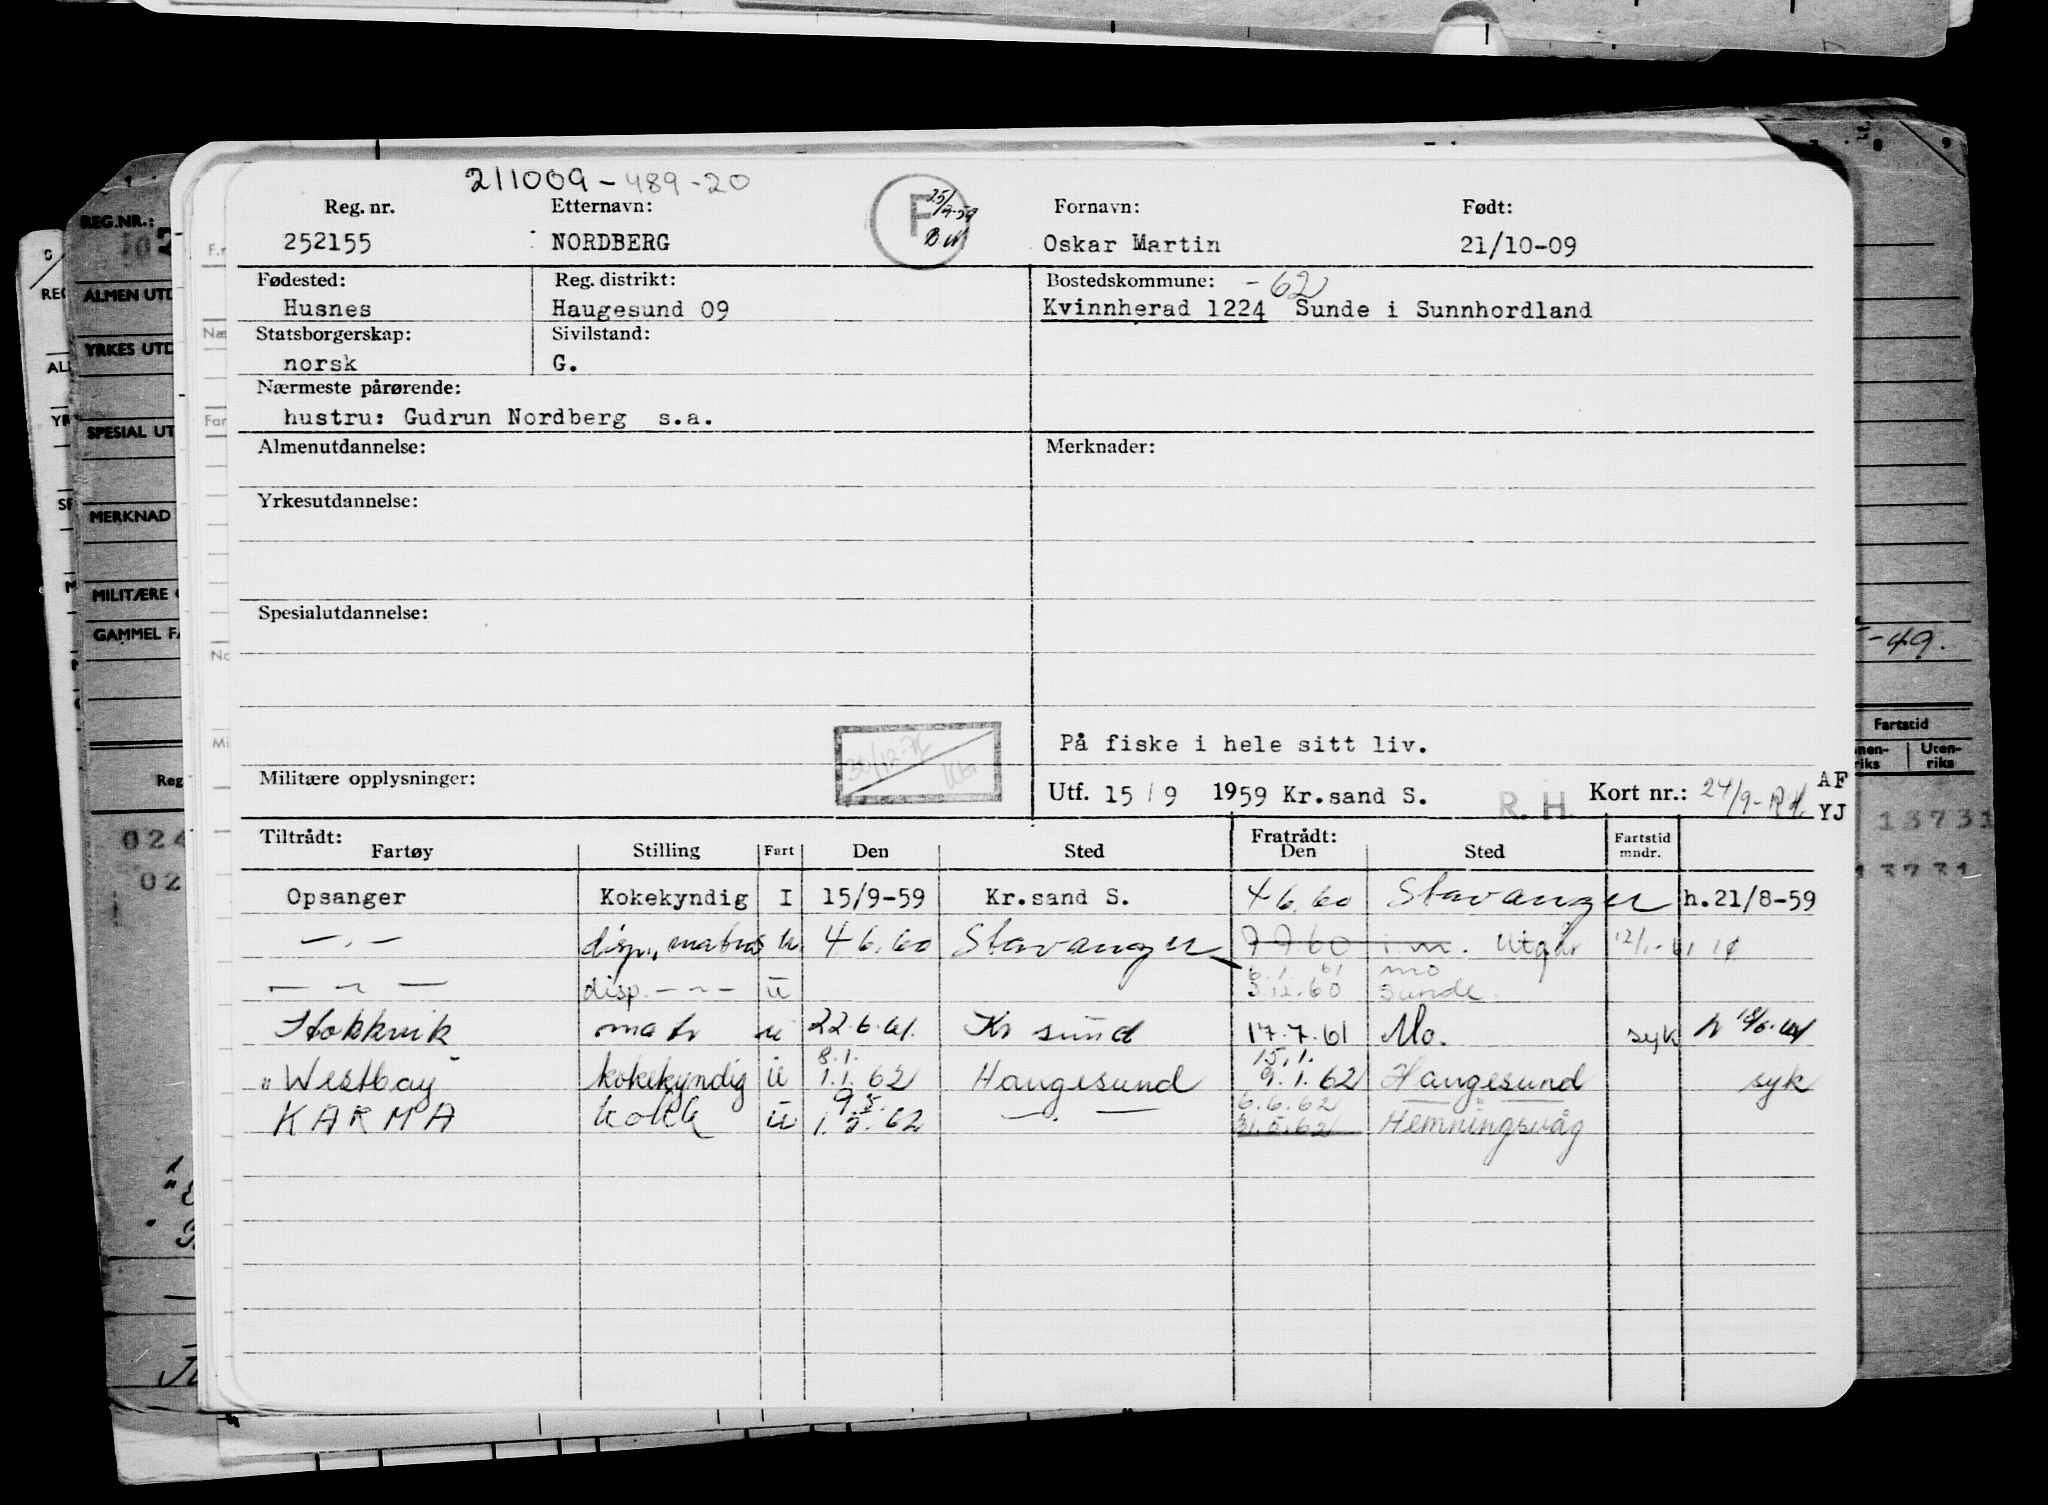 211009-489-20
Reg. nr. Etternavn: Fornavn: Født:
252155 NORDBERG F 25/9-59 Oskar Martin 21/10-09
Fødested: Reg. distrikt: Bostedskommune: -62
Husnes Haugesund 09 Kvinnherad 1224 Sunde i Sunnhordland
Statsborgerskap: Sivilstand:
norsk G.
Nærmeste pårørende:
hustru: Gudrun Nordberg s.a.
Almenutdannelse: Merknader:
Yrkesutdannelse:
Spesialutdannelse:
På fiske i hele sitt liv.
Militære opplysninger: Utf. 15/9 1959 Kr.sand S. R. H. Kort nr.: 24/9- AF
YJ
Tiltrådt: Fratrådt:
Fartøy Stilling Fart Den Sted Den Sted Fartstid mndr.
Opsanger Kokekyndig I 15/9-59 Kr.sand S. 4 6.60 Stavanger h.21/8-59
— . — disp., matros u. 4 6.60 Stavanger 7 7.60 i.m. utgår 12/1-61
6.1.61 mo
— ~ — disp. - ~ - ü 3.12.60 Sunde.
Stokkvik matr ü 22.6.61. Kr sund 17.7.61 Mo. syk
8.1. 15.1.
" Westbay kokekyndig ü 1.1.62 Haugesund 9.1.62 Haugesund syk
9.5. 6.6.62
KARMA kokk ü 1.5.62 — . — 31.5.62 Hemningsvåg
REG.NR.:
ALMEN UTD
YRKES UTD
SPESIAL UT
MERKNAD
MILITÆRE
GAMMEL FA
-49.
Fartstid
Uten-
riks
Reg
024 13731
02 13731